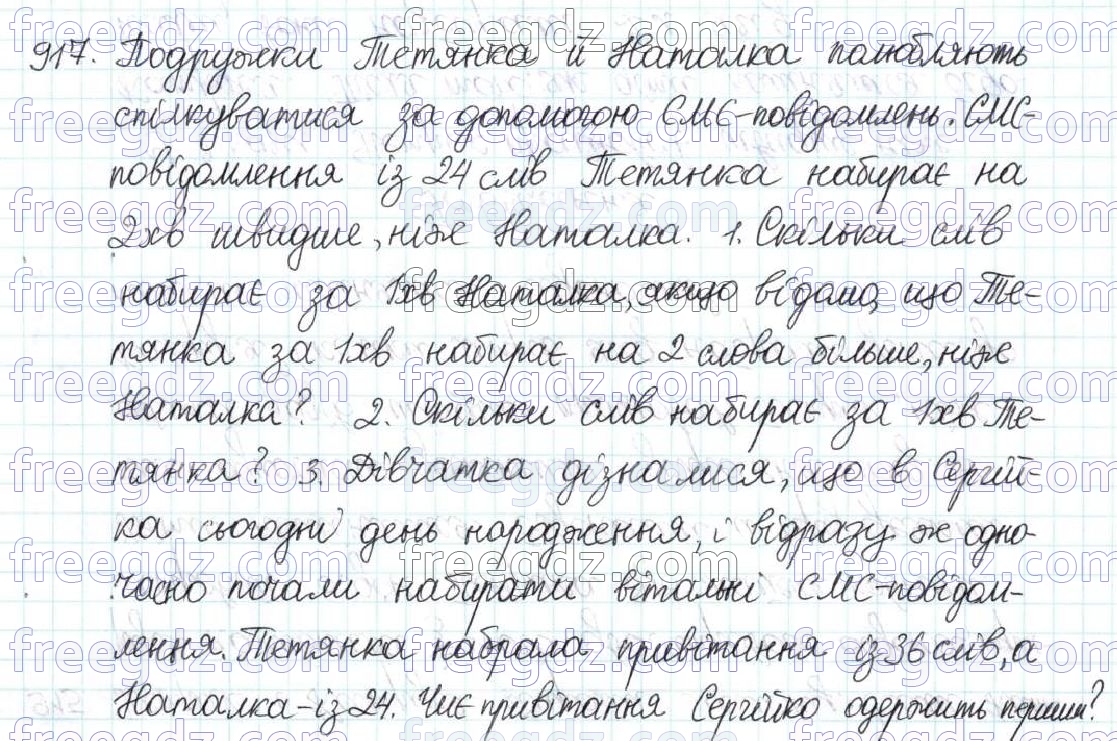 917. Подружки Тетянка й Наталка полюбляють
спілкуватися за допомогою СМС-повідомлень. СМС-
повідомлення із 24 слів Тетянка набирає на
2хв швидше, ніж Наталка. 1. Скільки слів
набирає за 1хв Наталка, якщо відомо, що Те-
тянка за 1хв набирає на 2 слова більше, ніж
Наталка? 2. Скільки слів набирає за 1хв Те-
тянка? 3. Дівчатка дізналися, що в Сергій-
ка сьогодні день народження, і відразу ж одно-
часно почали набирати вітальні СМС-повідом-
лення. Тетянка набрала привітання із 36 слів, а
Наталка - із 24. Чиє привітання Сергійко одержить першим?
freegdz.com